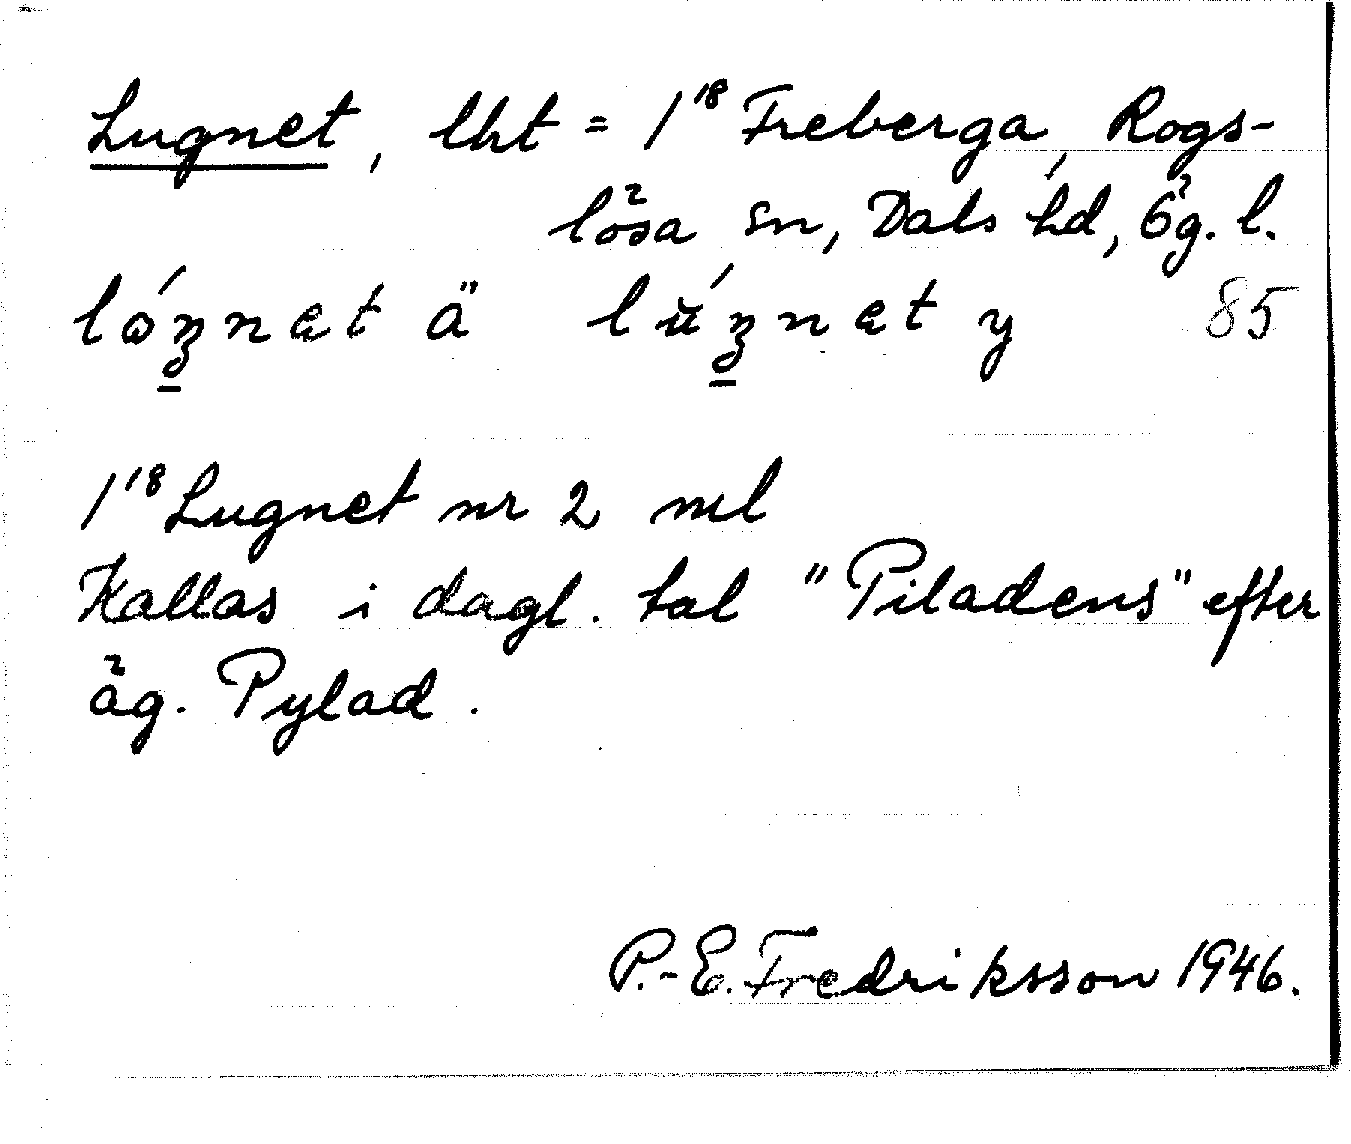 Lugnet, lht = 1¹⁸ Freberga, Rogs-
lösa sn, Dals hd, Ög. l.
lóᵹnet ä lúᵹnet y 85
1¹⁸ Lugnet nr 2 ml
Kallas i dagl. tal "Piladens" efter
äg. Pylad.
P.-E. Fredriksson 1946.